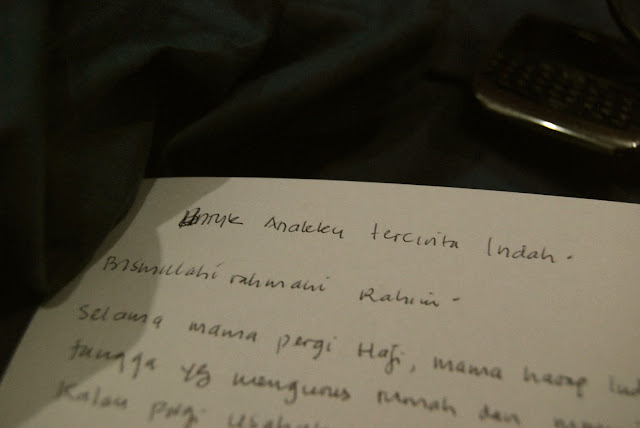 Untuk Anakku tercinta Indah.
Bismillahi rahmani Rahim.
Selama mama pergi Haji, mama harap Ind
tangga yg mengurus rumah dan
Kalau pergi